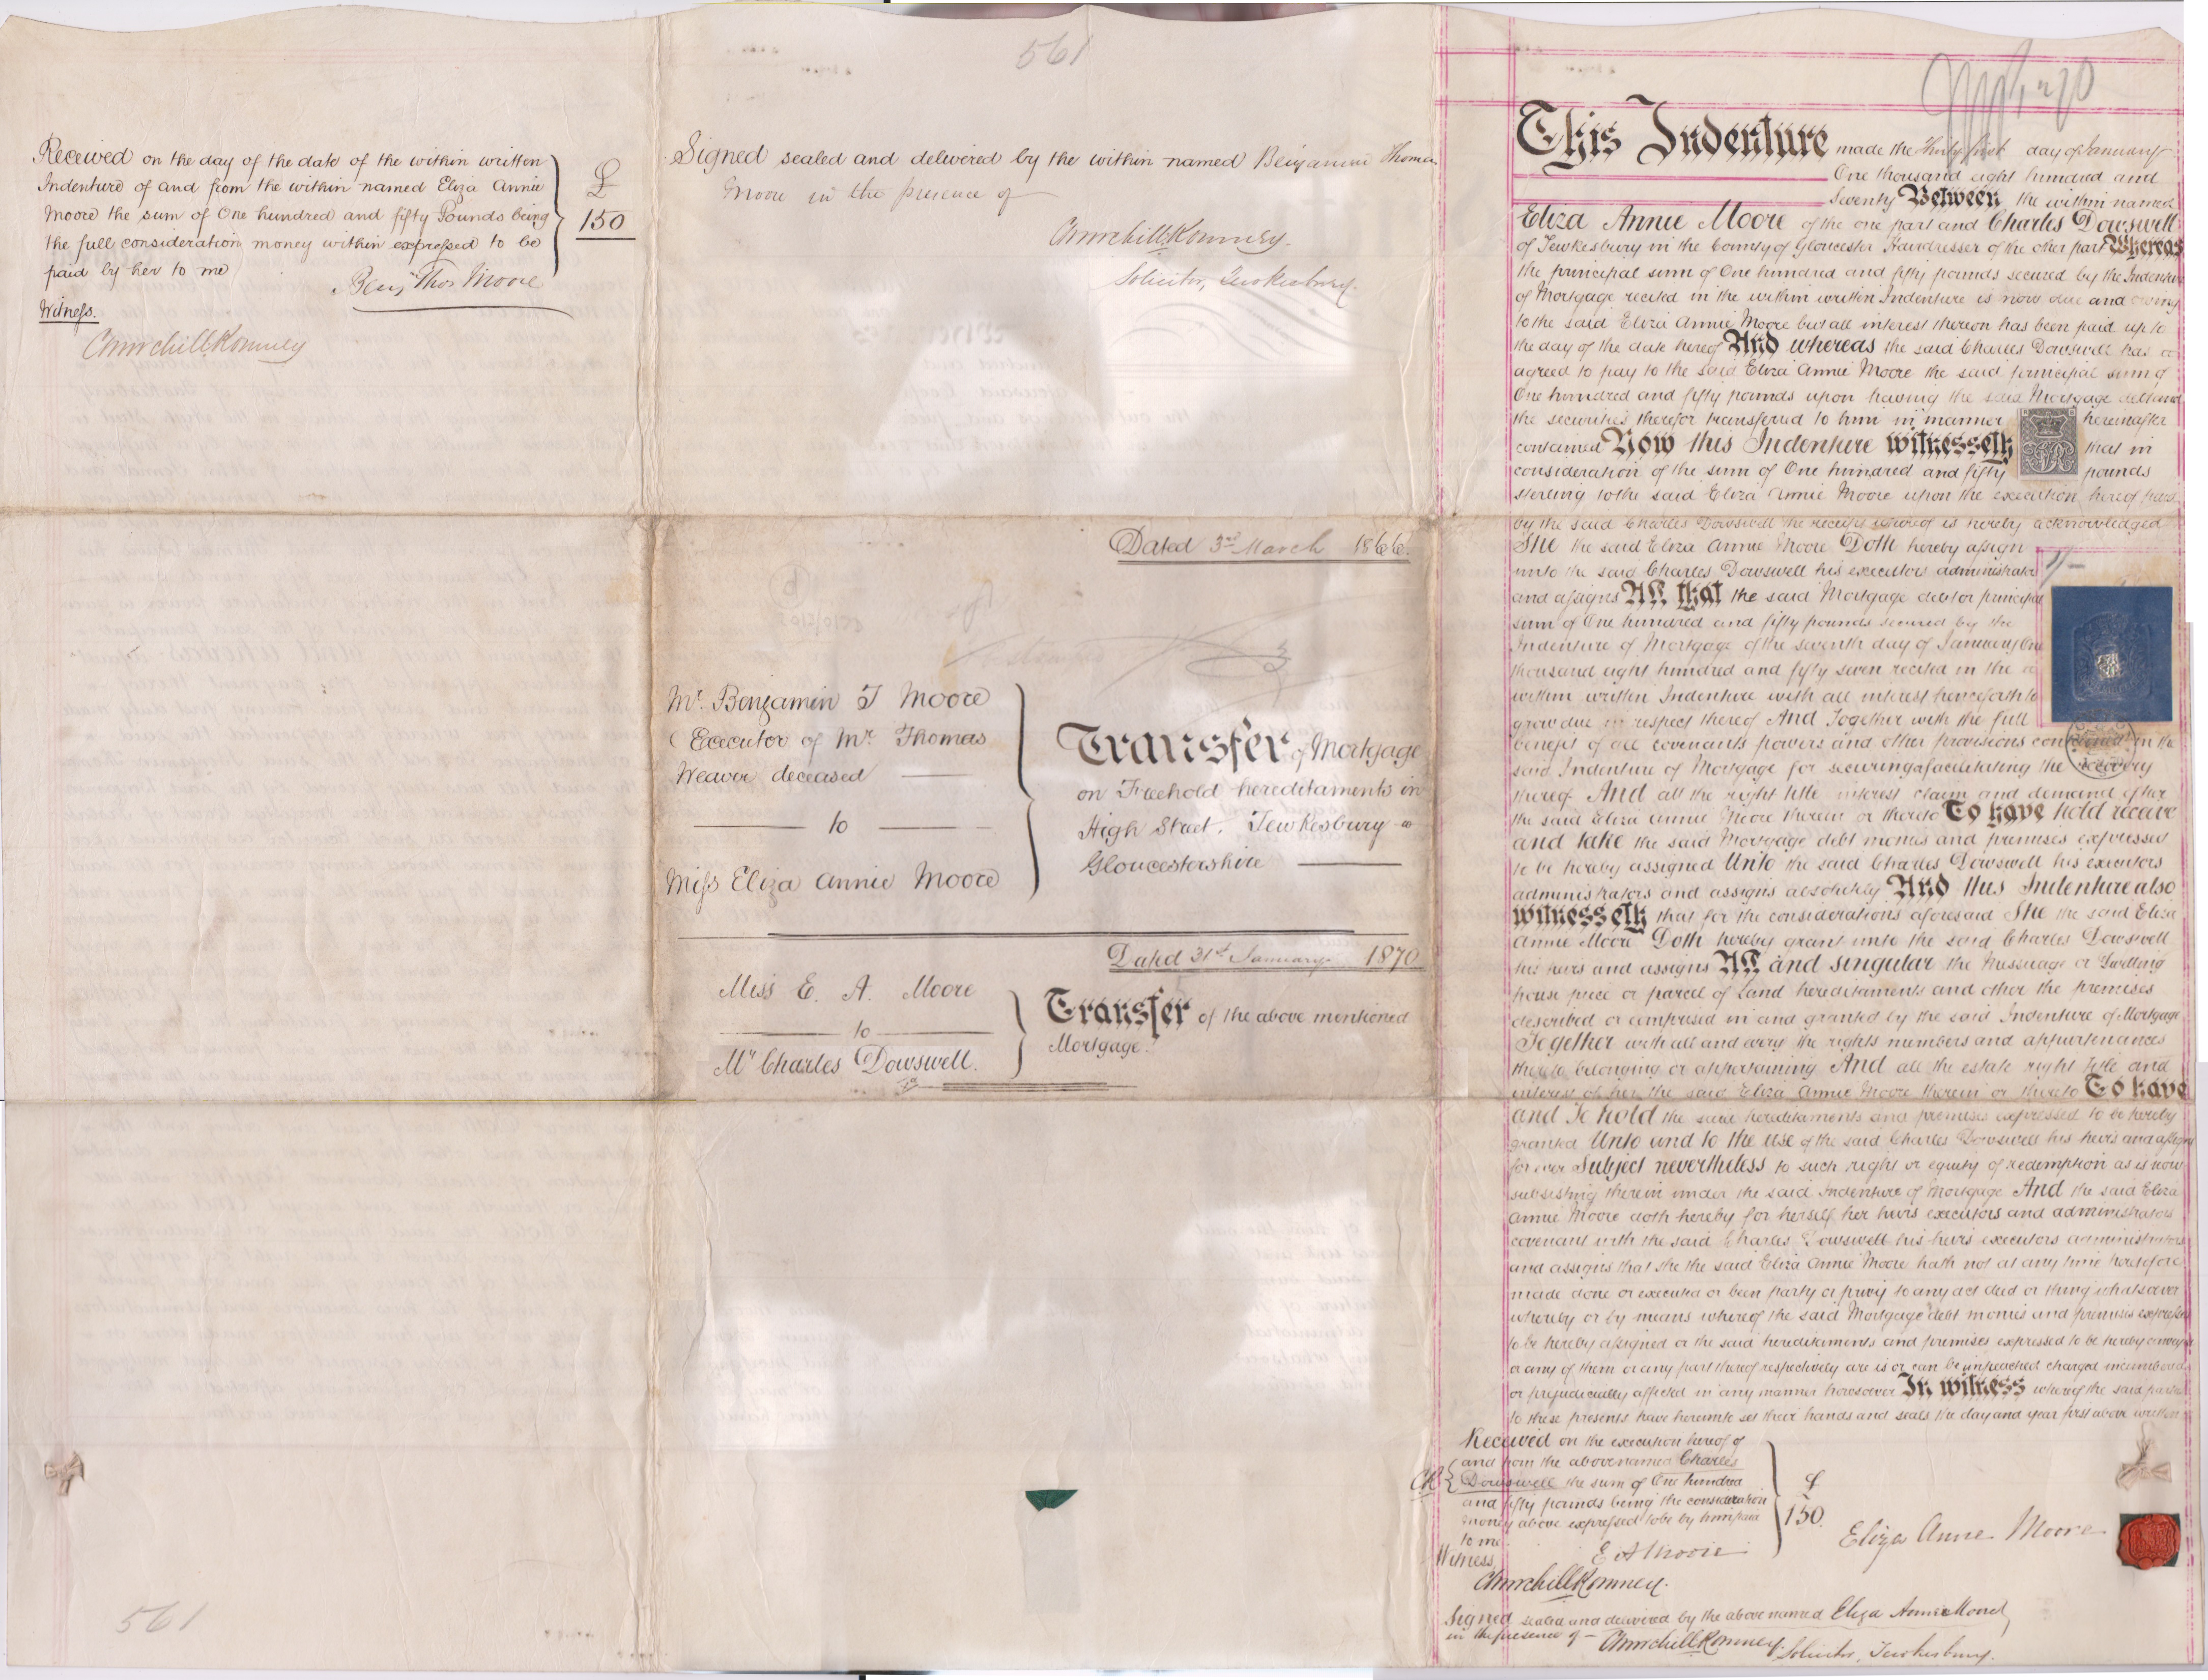 Received on the day of the date of the within written
Indenture of and from the within named Eliza Annie
Moore the sum of One hundred and fifty Pounds being
the full consideration money within expressed to be
paid by her to me
£
150
Benj Thos Moore
Witness.
Churchill Romney
561
561
Signed sealed and delivered by the within named Benjamin Thomas
Moore in the presence of
Churchill Romney.
Solicitor, Tewkesbury.
Dated 3rd March 1866.
Mr. Benjamin T Moore
Executor of Mr Thomas
Weaver deceased
to
Miss Eliza Annie Moore
Transfer of Mortgage
on Freehold hereditaments in
High Street. Tewkesbury
Gloucestershire
Dated 31st January 1870
Miss E. A. Moore
to
Mr Charles Dowswell.
Transfer of the above mentioned
Mortgage.
This Indenture made the thirty first day of January
One thousand eight hundred and
seventy Between the within named
Eliza Annie Moore of the one part and Charles Dowswell
of Tewkesbury in the County of Gloucester Hairdresser of the other part Whereas
the principal sum of One hundred and fifty pounds secured by the Indenture
of Mortgage recited in the within written Indenture is now due and owing
to the said Eliza Annie Moore but all interest thereon has been paid up to
the day of the date hereof And whereas the said Charles Dowswell has
agreed to pay to the said Eliza Annie Moore the said principal sum of
One hundred and fifty pounds upon having the said Mortgage debt and
the securities therefor transferred to him in manner hereinafter
contained Now this Indenture witnesseth that in
consideration of the sum of One hundred and fifty pounds
sterling to the said Eliza Annie Moore upon the execution hereof paid
by the said Charles Dowswell the receipt whereof is hereby acknowledged
She the said Eliza Annie Moore Doth hereby assign
unto the said Charles Dowswell his executors administrators
and assigns All that the said Mortgage debt or principal
sum of One hundred and fifty pounds secured by the
Indenture of Mortgage of the seventh day of January One
thousand eight hundred and fifty seven recited in the
within written Indenture with all interest henceforth to
grow due in respect thereof And Together with the full
benefit of all covenants powers and other provisions contained in the
said Indenture of Mortgage for securing & facilitating the recovery
thereof And all the right title interest claim and demand of her
the said Eliza Annie Moore therein or thereto To have hold receive
and take the said Mortgage debt monies and premises expressed
to be hereby assigned Unto the said Charles Dowswell his executors
administrators and assigns absolutely And this Indenture also
witnesseth that for the considerations aforesaid She the said Eliza
Annie Moore Doth hereby grant unto the said Charles Dowswell
his heirs and assigns All and singular the Messuage or Dwelling
house piece or parcel of Land hereditaments and other the premises
described or comprised in and granted by the said Indenture of Mortgage
Together with all and every the rights members and appurtenances
thereto belonging or appertaining And all the estate right title and
interest of her the said Eliza Annie Moore therein or thereto To have
and To hold the said hereditaments and premises expressed to be hereby
granted Unto and to the use of the said Charles Dowswell his heirs and assigns
for ever Subject nevertheless to such right or equity of redemption as is now
subsisting therein under the said Indenture of Mortgage And the said Eliza
Annie Moore doth hereby for herself her heirs executors and administrators
covenant with the said Charles Dowswell his heirs executors administrators
and assigns that she the said Eliza Annie Moore hath not at any time heretofore
made done or executed or been party or privy to any act deed or thing whatsoever
whereby or by means whereof the said Mortgage debt monies and premises expressed
to be hereby assigned or the said hereditaments and premises expressed to be hereby conveyed
or any of them or any part thereof respectively are is or can be impeached charged incumbered
or prejudicially affected in any manner howsoever In witness whereof the said parties
to these presents have hereunto set their hands and seals the day and year first above written
1/-
Received on the execution hereof of
and from the abovenamed Charles
CR Dowswell the sum of One hundred
and fifty pounds being the consideration
money above expressed to be by him paid
to me
£
150.
E A Moore
Witness,
Churchill Romney.
Eliza Annie Moore
Signed sealed and delivered by the above named Eliza Annie Moore
in the presence of – Churchill Romney.
Solicitor, Tewkesbury.